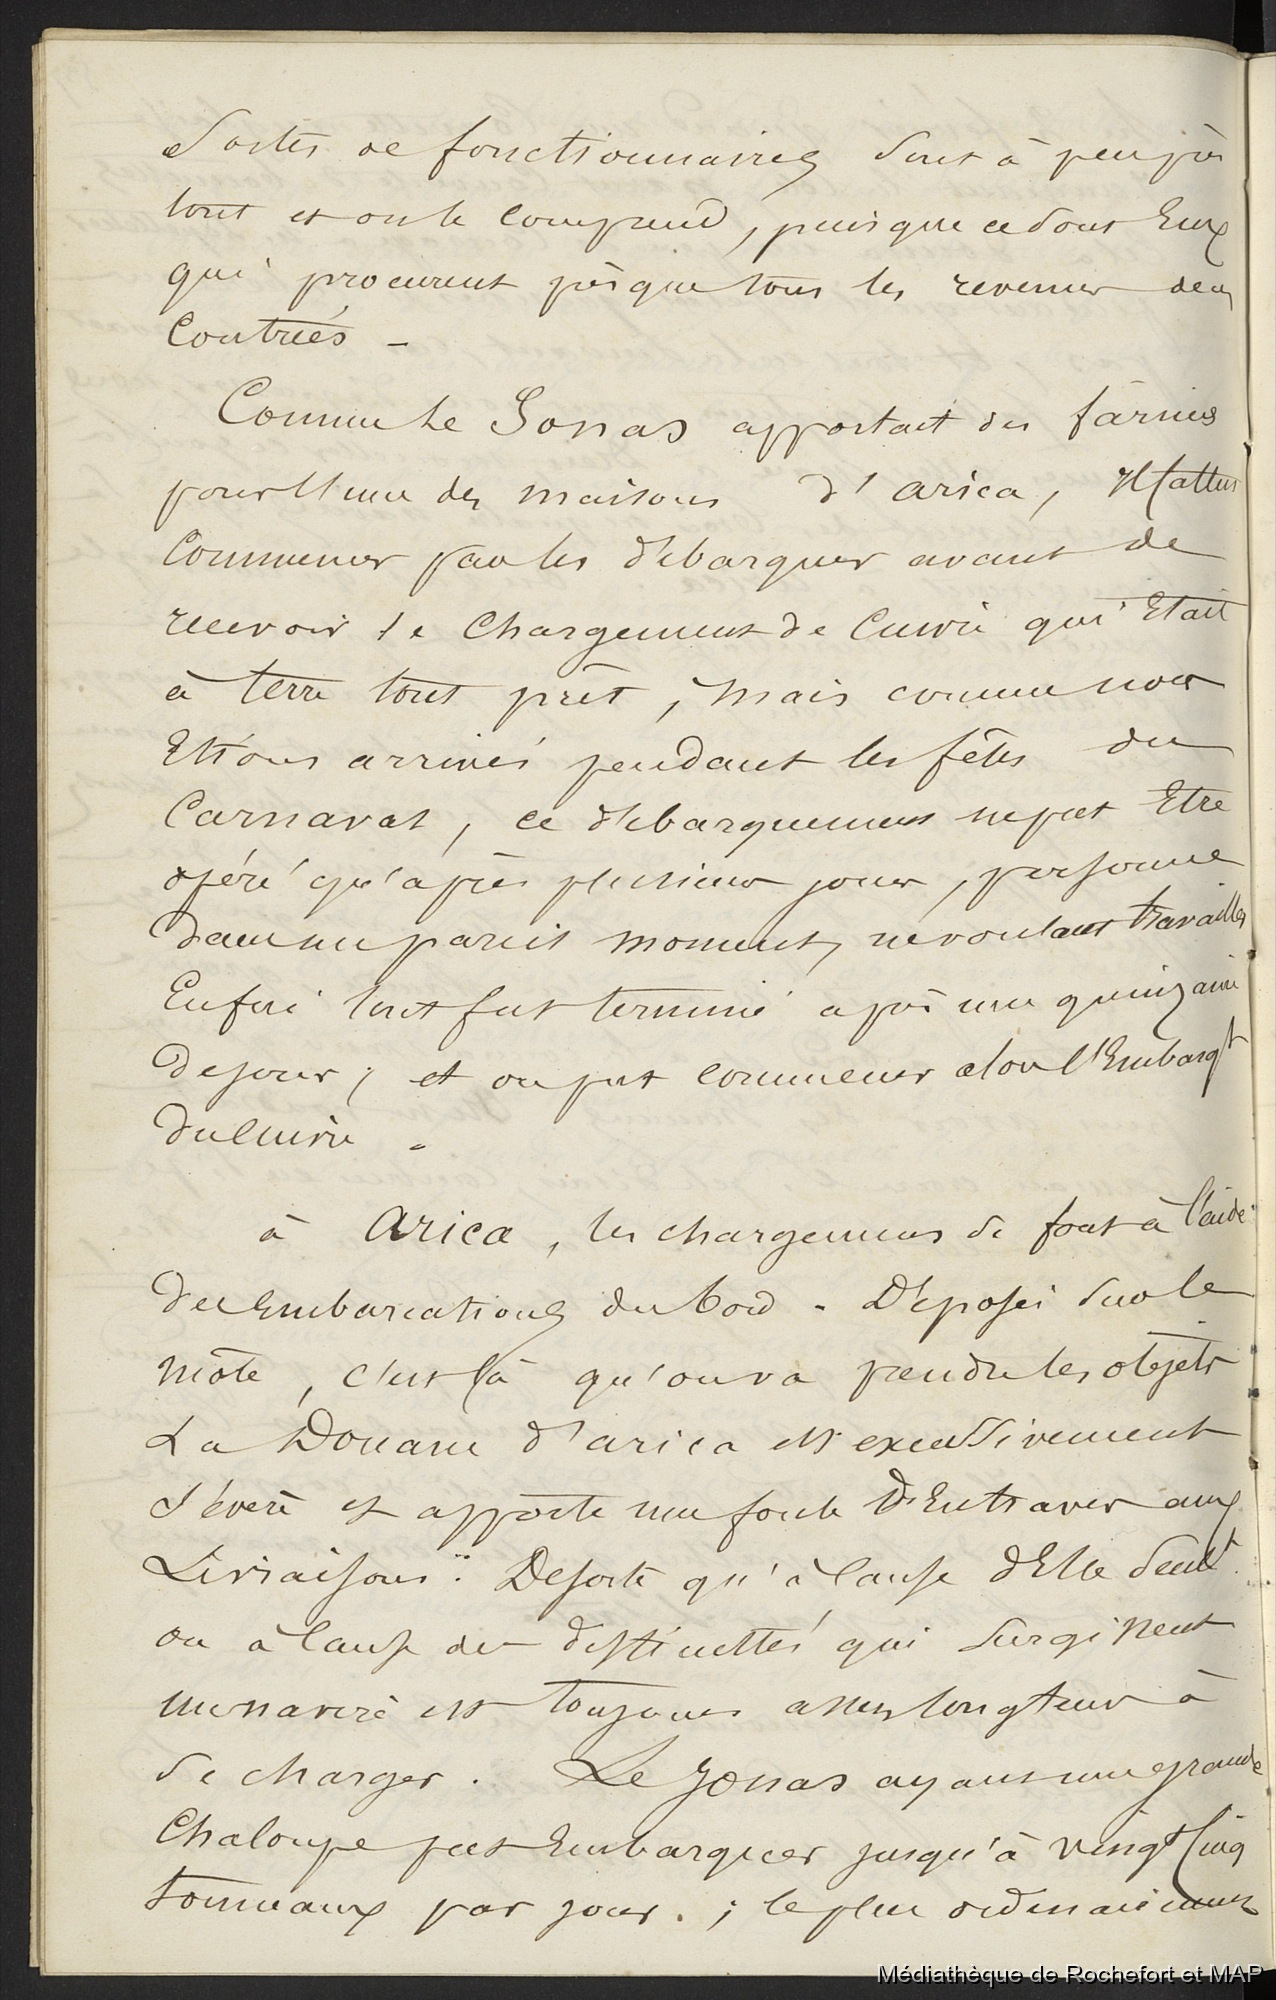 Sortes de fonctionnaires sont à peu près
tout et on le comprend, puisque ce sont Eux
qui procurent presque tous les revenus de ces
Contrées -
Comme le Jonas apportait des farines
pour l'une des maisons d'arica, Il fallut
Commencer par les débarquer avant de
recevoir le Chargement de Cuivre qui Etait
à terre tout prêt, mais comme nous
Etions arrivés pendant les fêtes du
Carnaval, ce débarquement ne put Etre
opéré qu'après plusieurs jours, personne
dans un pareil moment, ne voulant travailler
Enfin tout fut terminé après une quinzaine
de jours; et on put commencer alors l'Embarqt
du Cuivre.
à Arica, les chargemens se font à l'aide
des Embarcations du bord. Déposés sur le
môle, c'est là qu'on va prendre les objets
La Douane d'arica est excessivement
sévère et apporte une foule d'Entraves aux
Livraisons. De sorte qu'à cause d'Elle seule
ou à cause des difficultés qui surgissent
un navire est toujours assez longtems à
se charger. Le Jonas ayant une grande
Chaloupe put Embarquer jusqu'à vingt Cinq
tonneaux par jour.; le plus ordinairement
Médiathèque de Rochefort et MAP